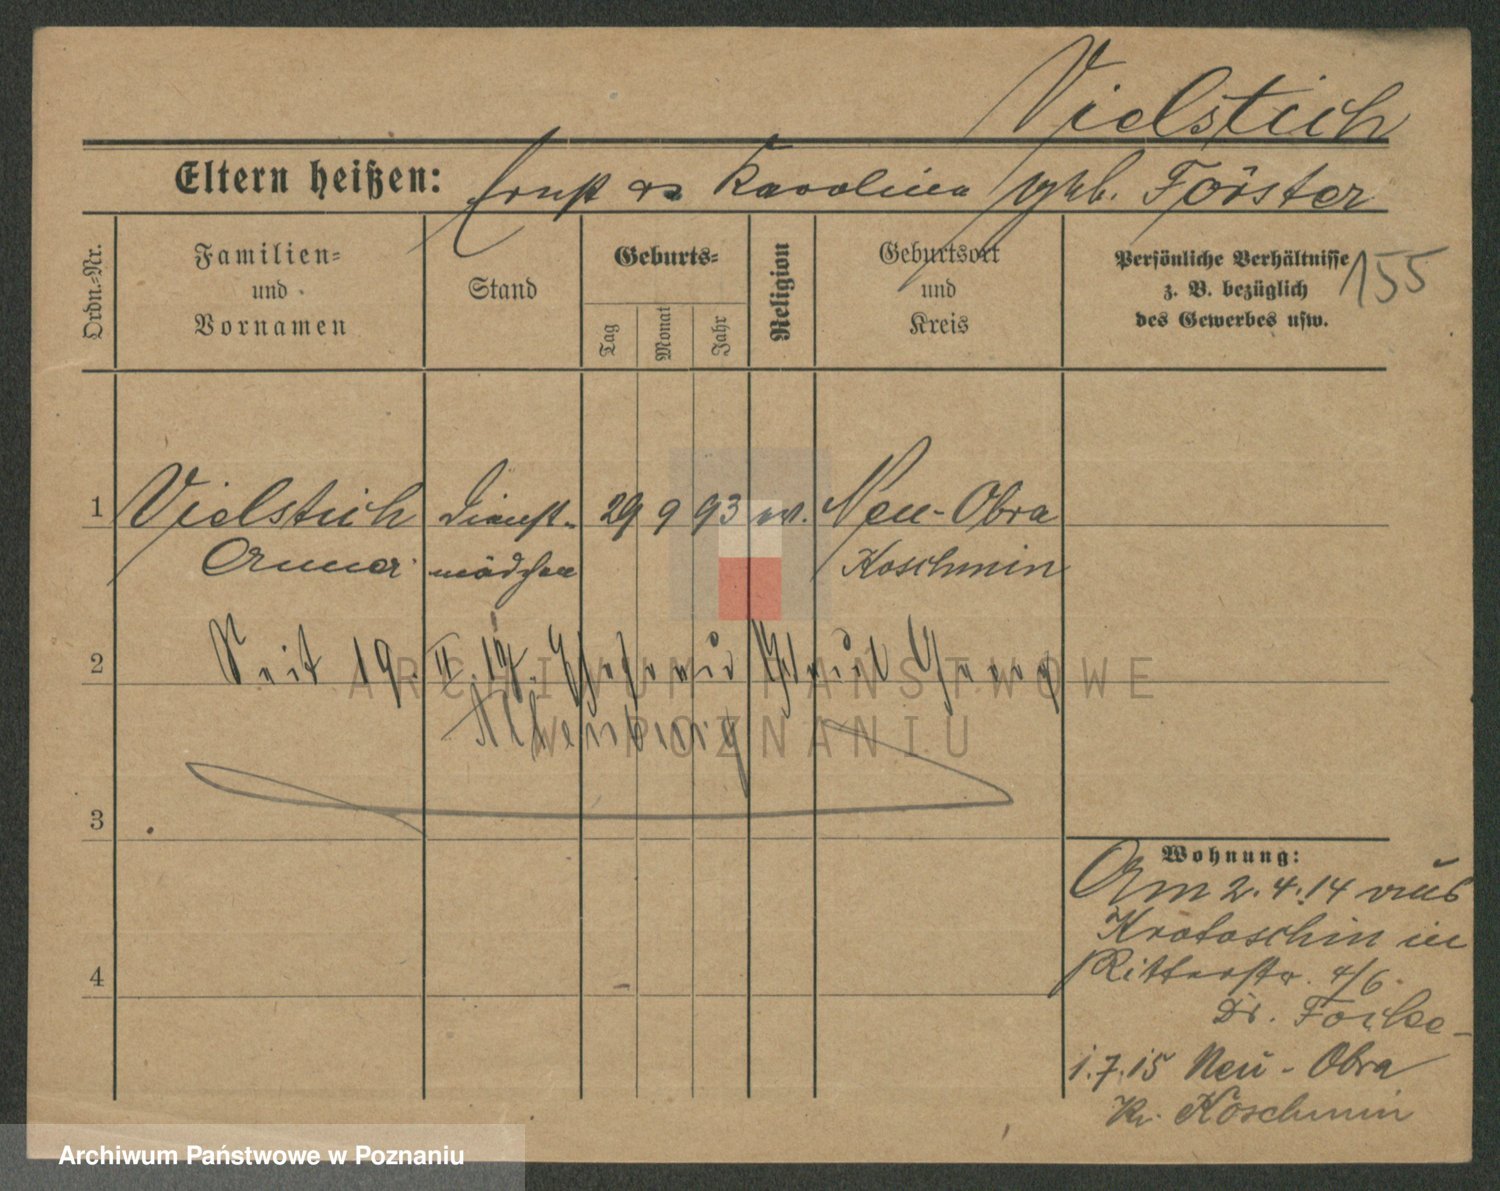 Vielstich
Eltern heißen: Ernst u. Karolina geb. Förster
Ordn.-Nr.
Familien-
und
Vornamen
Stand
Geburts-
Tag
Monat
Jahr
Religion
Geburtsort
und
Kreis
Persönliche Verhältnisse
z. B. bezüglich
des Gewerbes usw.
155
1 Vielstich Dienst- 29 9 93 ev. Neu-Obra
Anna mädchen Koschmin
2 Seit 19. II. 19. Ehefrau Georg
3
4
Wohnung:
Am 2.4.14 aus
Krotoschin in
Ritterstr. 4/6.
Dr.
1.7.15 Neu-Obra
Kr. Koschmin
ARCHIWUM PAŃSTWOWE
W POZNANIU
Archiwum Państwowe w Poznaniu